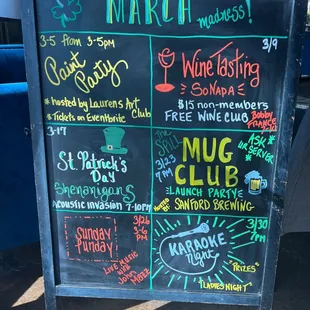 MARCH
madness!
3-5 from 3-5pm
Paint
Party
* hosted by Laurens Art
Club
* Tickets on Eventbrite
3/9
Wine Tasting
SONADA
$15 non-members
FREE WINE CLUB
Bobby
FRANCE
3-17
St. Patrick's
Day
Shenanigans
Acoustic invasion 7-10pm
3/23
7pm
MUG
CLUB
LAUNCH PARTY
SANFORD BREWING
ASK
UR
SERVER
Sunday
Funday
3/26
3-6
PM
LIVE MUSIC
WITH
JOHN
3/30
7pm
KARAOKE
Night
"PRIZES"
"LADIES NIGHT"